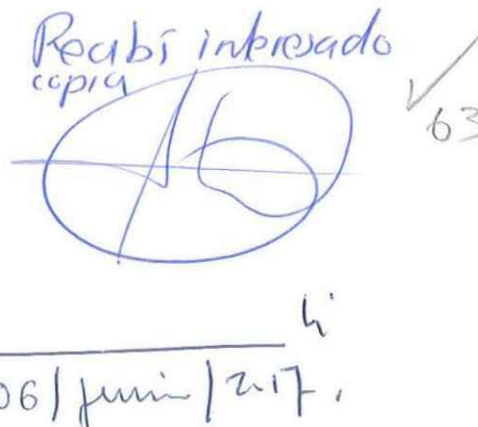 Recibí interesado
copia
63
06/junio/2017.